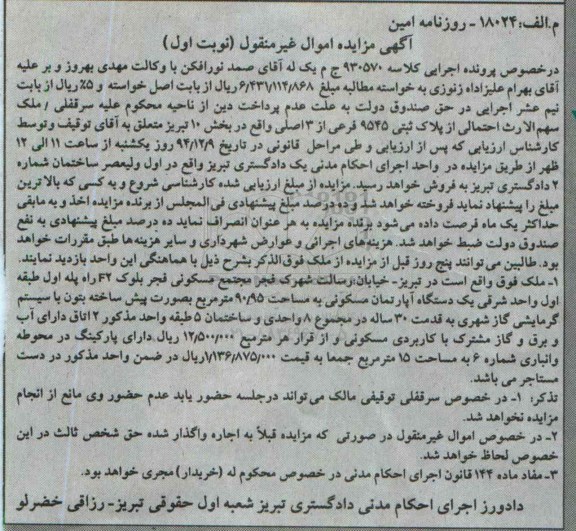 م.الف:۱۸۰۲۴ - روزنامه امین
آگهی مزایده اموال غیرمنقول (نوبت اول)
درخصوص پرونده اجرایی کلاسه ۹۳۰۵۷۰ ج م یک له آقای صمد نورافکن با وکالت مهدی بهروز و بر علیه
آقای بهرام علیزاداه زنوزی به خواسته مطالبه مبلغ ۶/۴۳۱/۱۱۴/۸۶۸ ریال از بابت اصل خواسته و ۵٪ ریال از بابت
نیم عشر اجرایی در حق صندوق دولت به علت عدم پرداخت دین از ناحیه محکوم علیه سرقفلی / ملک
سهم‌الارث احتمالی از پلاک ثبتی ۹۵۴۵ فرعی از ۳ اصلی واقع در بخش ۱۰ تبریز متعلق به آقای توقیف وتوسط
کارشناس ارزیابی که پس از ارزیابی و طی مراحل قانونی در تاریخ ۹۴/۱۲/۹ روز یکشنبه از ساعت ۱۱ الی ۱۲
ظهر از طریق مزایده در واحد اجرای احکام مدنی یک دادگستری تبریز واقع در اول ولیعصر ساختمان شماره
۲ دادگستری تبریز به فروش خواهد رسید. مزایده از مبلغ ارزیابی شده کارشناسی شروع و به کسی که بالاترین
مبلغ را پیشنهاد نماید فروخته خواهد شد و ده درصد مبلغ پیشنهادی فی‌المجلس از برنده مزایده اخذ و به مابقی
حداکثر یک ماه فرصت داده می‌شود برنده مزایده به هر عنوان انصراف نماید ده درصد مبلغ پیشنهادی به نفع
صندوق دولت ضبط خواهد شد. هزینه‌های اجرائی و عوارض شهرداری و سایر هزینه‌ها طبق مقررات خواهد
بود. طالبین می‌توانند پنج روز قبل از مزایده از ملک فوق‌الذکر بشرح ذیل با هماهنگی این واحد بازدید نمایند.
۱- ملک فوق واقع است در تبریز - خیابان رسالت شهرک فجر مجتمع مسکونی فجر بلوک F۲ راه پله اول طبقه
اول واحد شرقی یک دستگاه آپارتمان مسکونی به مساحت ۹۰/۹۵ مترمربع بصورت پیش ساخته بتون با سیستم
گرمایشی گاز شهری به قدمت ۳۰ ساله در مجموع ۸ واحدی و ساختمان ۵ طبقه واحد مذکور ۲ اتاق دارای آب
و برق و گاز مشترک با کاربردی مسکونی و از قرار هر مترمبع ۱۲/۵۰۰/۰۰۰ ریال دارای پارکینگ در محوطه
وانباری شماره ۶ به مساحت ۱۵ مترمربع جمعا به قیمت ۱/۱۳۶/۸۷۵/۰۰۰ریال در ضمن واحد مذکور در دست
مستاجر می باشد.
تذکر: ۱- در خصوص سرقفلی توقیفی مالک می‌تواند درجلسه حضور یابد عدم حضور وی مانع از انجام
مزایده نخواهد شد.
۲- در خصوص اموال غیرمنقول در صورتی که مزایده قبلاً به اجاره واگذار شده حق شخص ثالث در این
خصوص لحاظ خواهد شد.
۳- مفاد ماده ۱۴۴ قانون اجرای احکام مدنی در خصوص محکوم له (خریدار) مجری خواهد بود.
دادورز اجرای احکام مدنی دادگستری تبریز شعبه اول حقوقی تبریز- رزاقی خضرلو